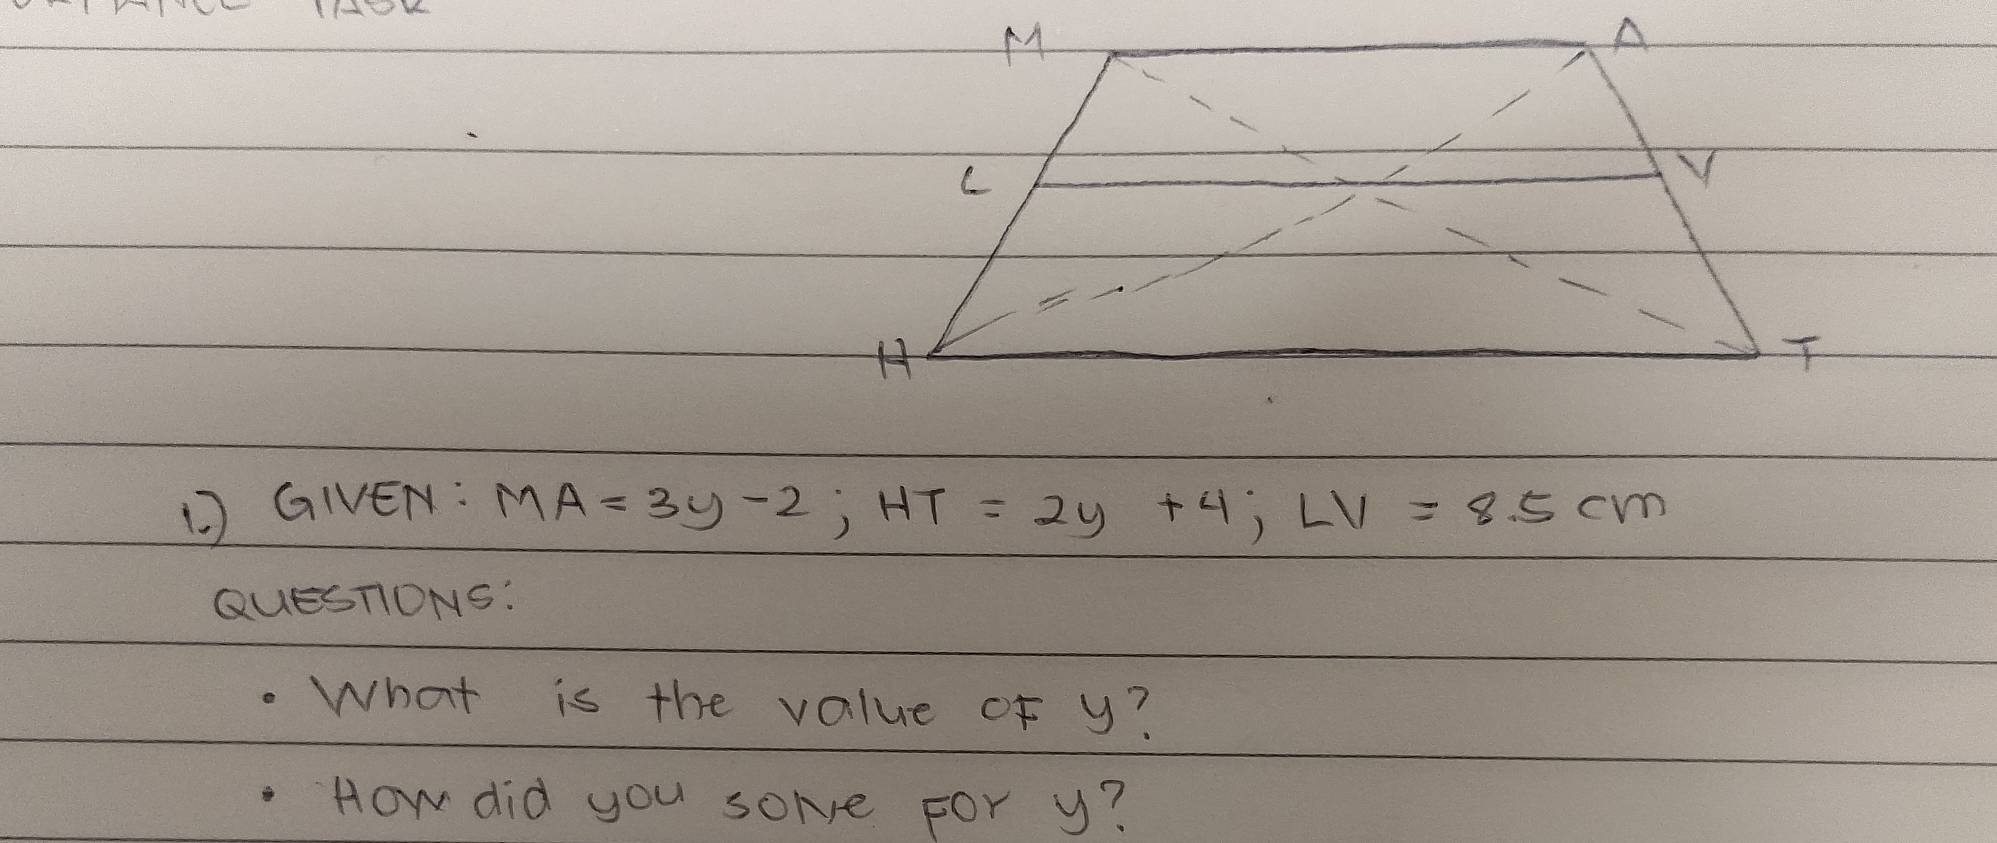 TASK
M A
L V
H T
1.) GIVEN: MA = 3y - 2; HT = 2y + 4; LV = 8.5 cm
QUESTIONS:
• What is the value of y?
• How did you solve for y?